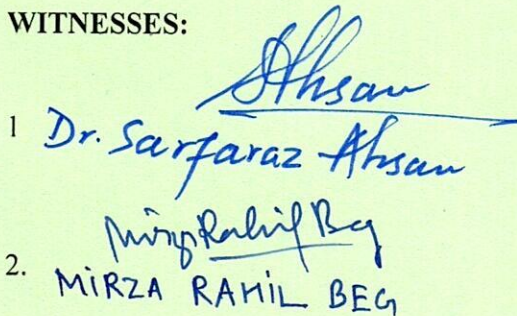 WITNESSES:
SAhsan
1 Dr. Sarfaraz Ahsan
Mirza Rahil Beg
2. MIRZA RAHIL BEG